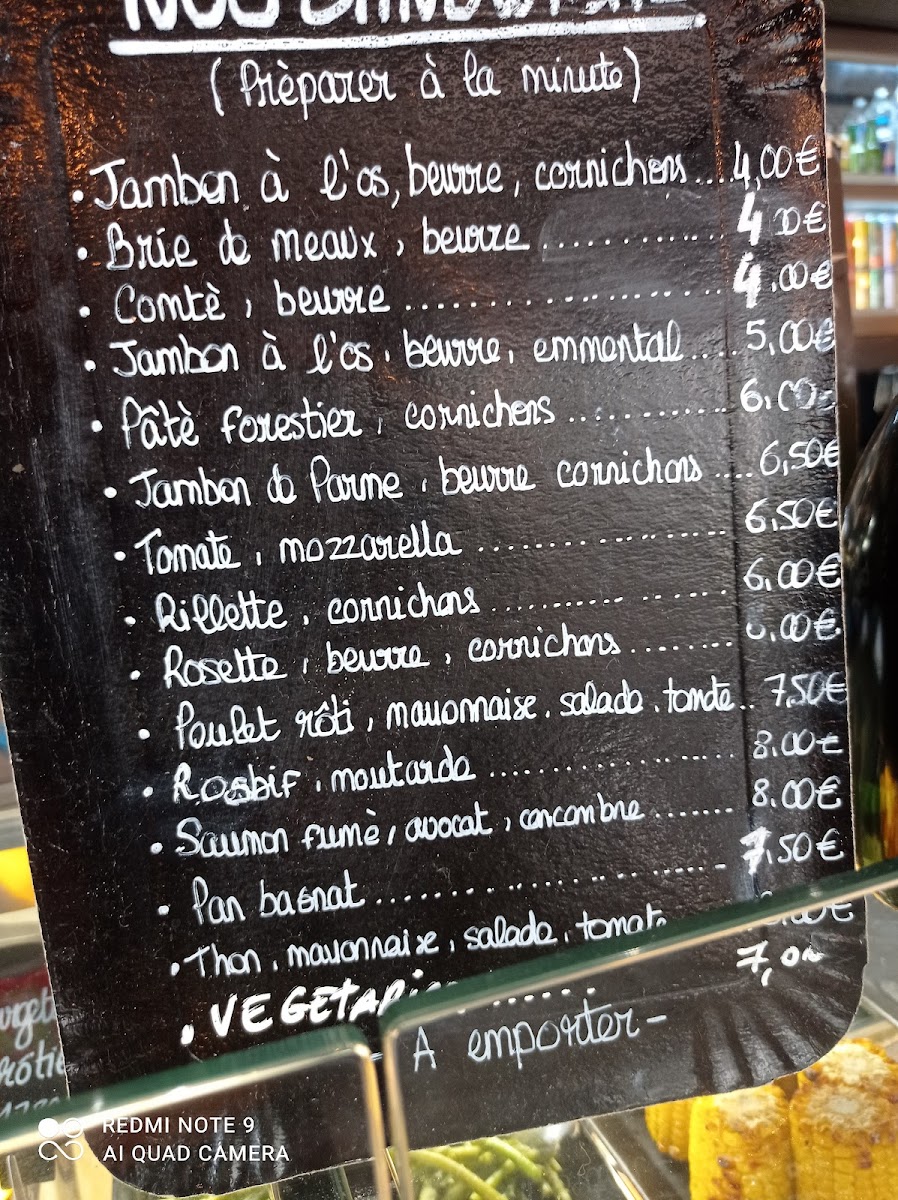 NOS
(Prèparer à la minute)
• Jambon à l'os, beurre, cornichons....4,00€
• Brie de meaux, beurre ............ 4,00€
• Comtè, beurre ...................... 4,00€
• Jambon à l'os, beurre, emmental.....5,00€
• Pâtè forestier, cornichons ............ 6,00
• Jambon de Parme, beurre cornichons ....6,50€
• Tomate, mozzarella .................. 6,50€
• Rillette, cornichons ................. 6,00€
• Rosette, beurre, cornichons ........ 6,00€
• Poulet rôti, mayonnaise, salade, tomate.. 7,50€
• Rosbif, moutarde ................. 8,00€
• Saumon fumè, avocat, concombre ....... 8,00€
• Pan bagnat ........................ 7,50€
• Thon, mayonnaise, salade, tomate
• VEGETARI ...... 7,00
A emporter-
rôtie
REDMI NOTE 9
AI QUAD CAMERA